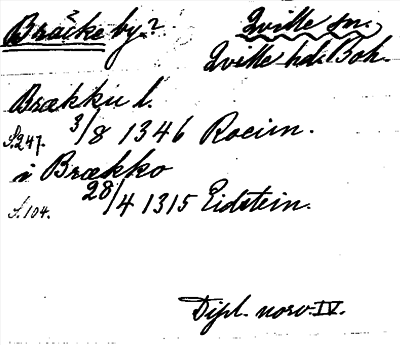 Bräcke by.? Qville sn.
Qville hd. Boh.
Brækkiu l.
S. 247. 3/8 1346 Roeim.
i Brækko
S. 104. 28/4 1315 Eidstein.
Dipl. norv. IV.